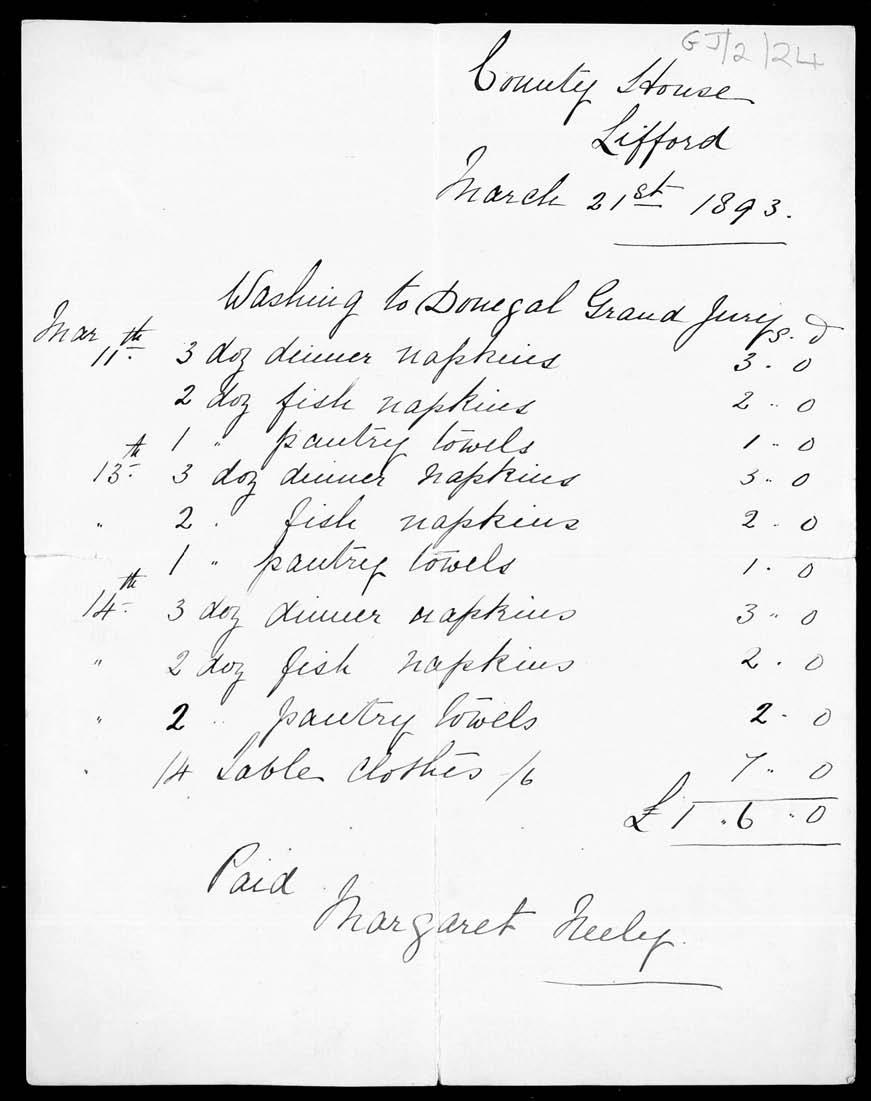 GJ/2/24
County House
Lifford
March 21st 1893.
Washing to Donegal Grand Jury s. d
Mar 11th 3 doz dinner napkins 3 . 0
2 doz fish napkins 2 .. 0
1 " pantry towels 1 .. 0
13th 3 doz dinner napkins 3 .. 0
" 2 . fish napkins 2 . 0
1 " pantry towels 1 . 0
14th 3 doz dinner napkins 3 .. 0
" 2 doz fish napkins 2 . 0
" 2 " pantry towels 2 - 0
" 14 Table clothes -/6 7 .. 0
£1 .. 6 .. 0
Paid
Margaret Neely.